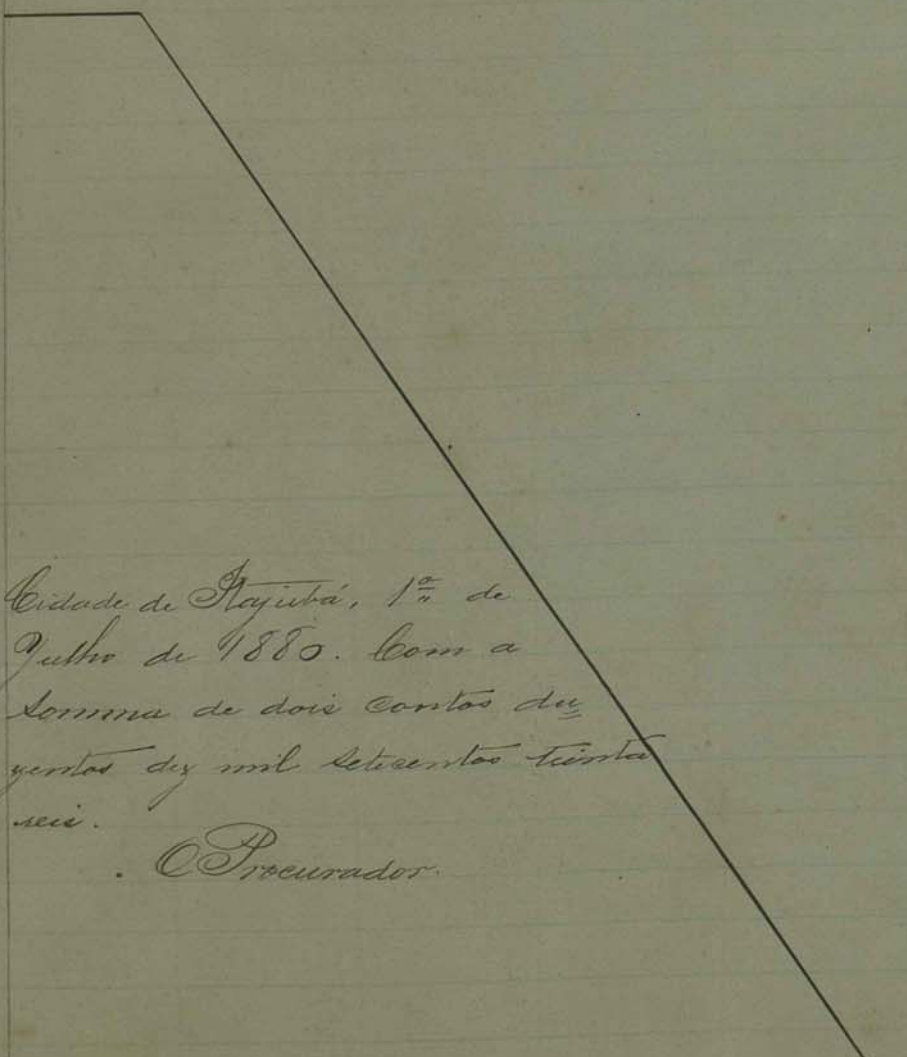 Cidade de Itajubá, 1º de
Julho de 1880. Com a
Somma de dois contos du
zentos dez mil setecentos trinta
reis.
O Procurador.